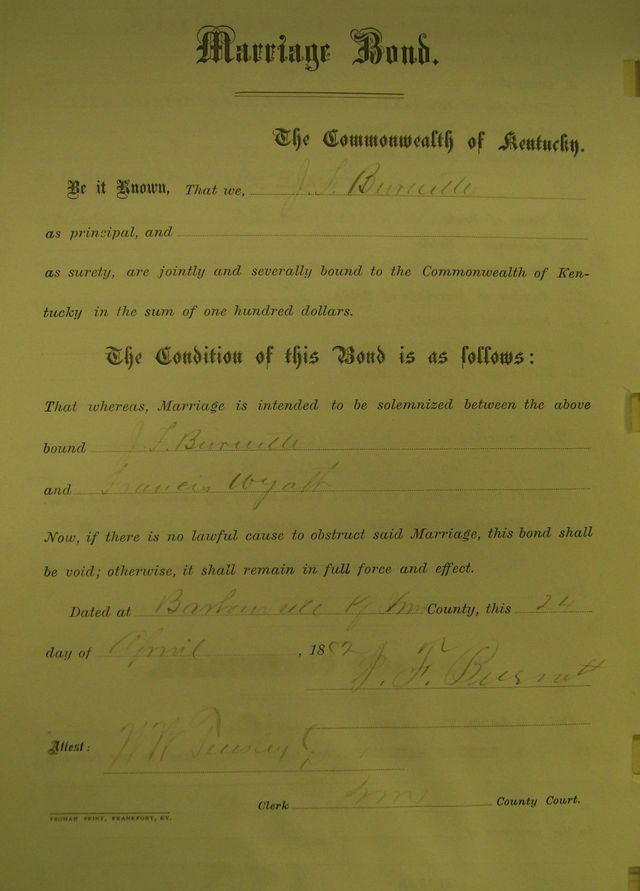 Marriage Bond.
The Commonwealth of Kentucky.
Be it Known, That we, J. F.
as principal, and
as surety, are jointly and severally bound to the Commonwealth of Ken-
tucky in the sum of one hundred dollars.
The Condition of this Bond is as follows:
That whereas, Marriage is intended to be solemnized between the above
bound J. F.
and Francis Wyatt
Now, if there is no lawful cause to obstruct said Marriage, this bond shall
be void; otherwise, it shall remain in full force and effect.
Dated at Barbourville Ky County, this 24
day of April, 18
J. F.
Attest: W W
Clerk County Court.
YEOMAN PRINT, FRANKFORT, KY.